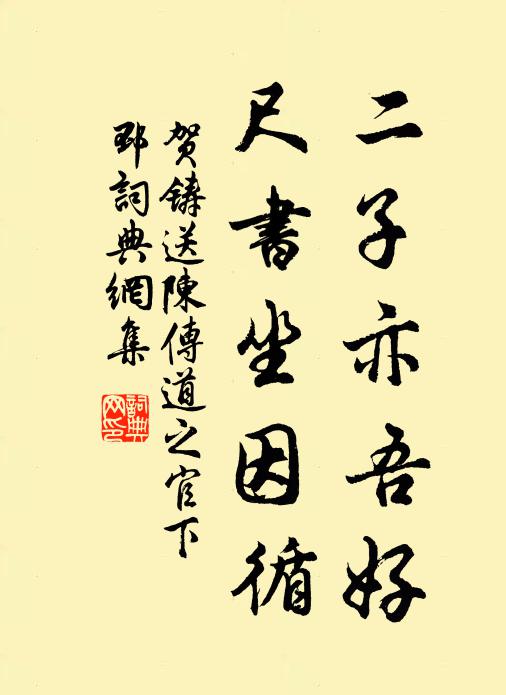 二子亦吾好
尺書坐因循
賀鑄送陳傳道之官下
邳詞典網集
詞典網印